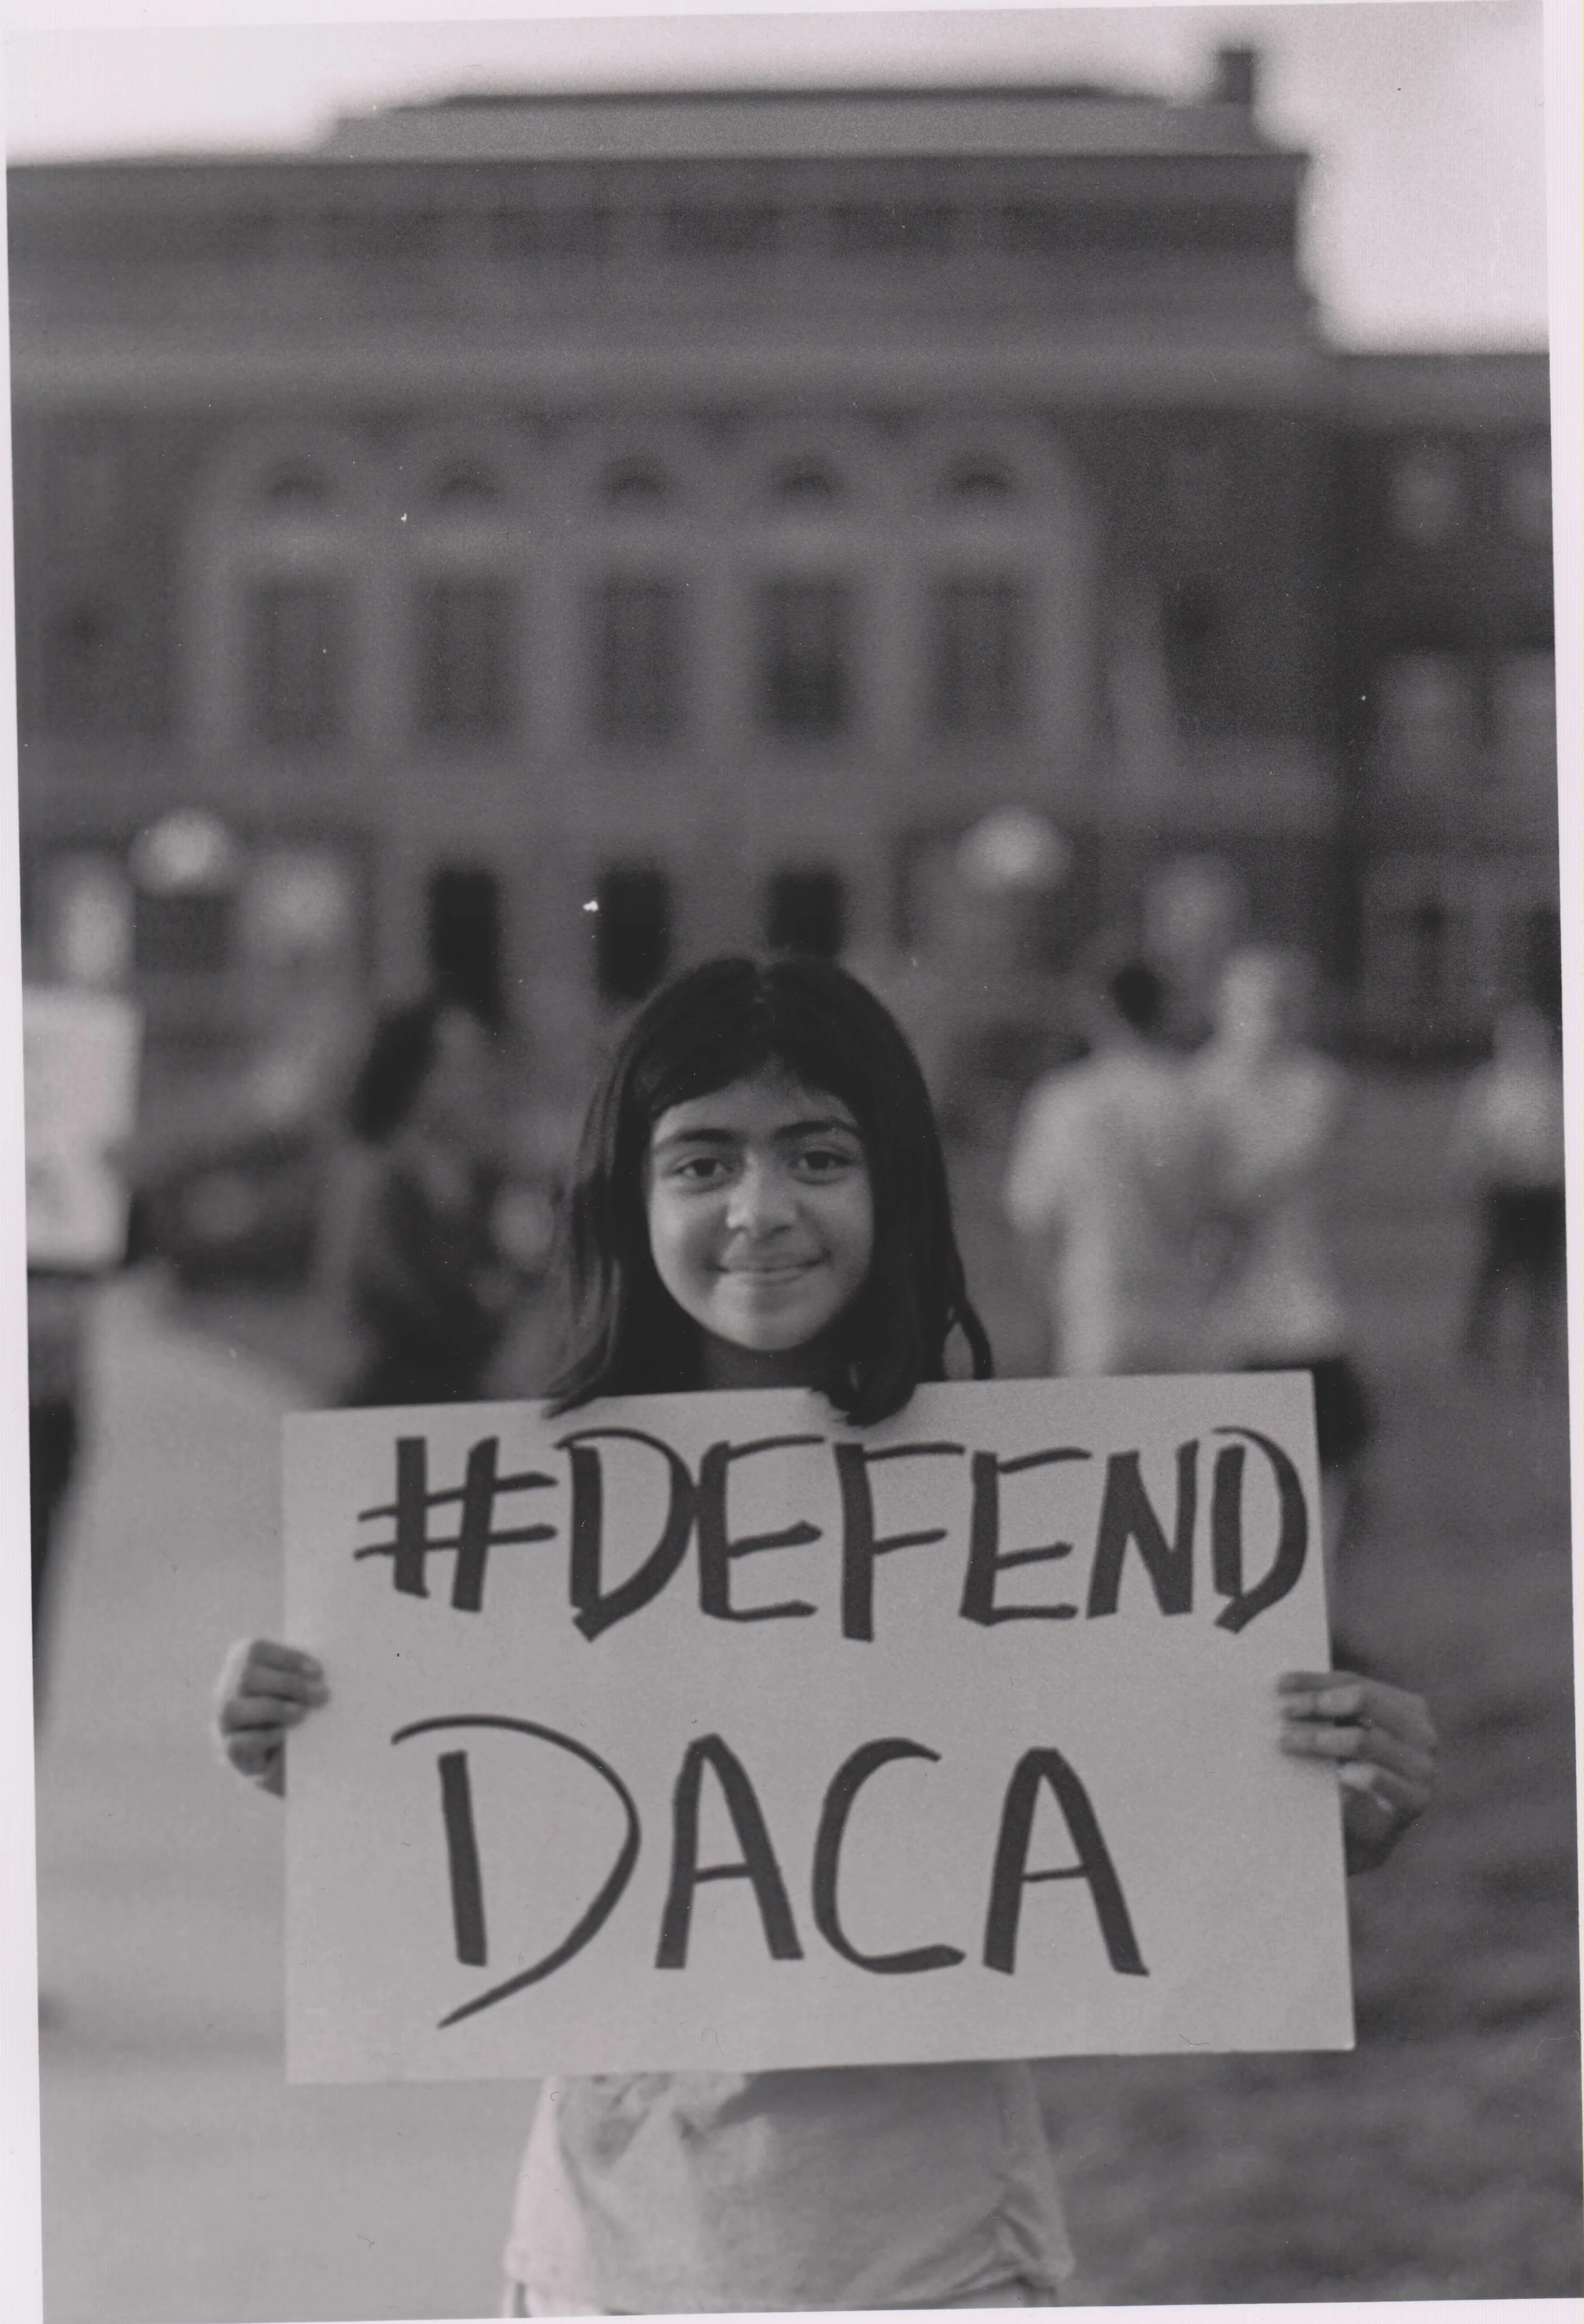 #DEFEND
DACA